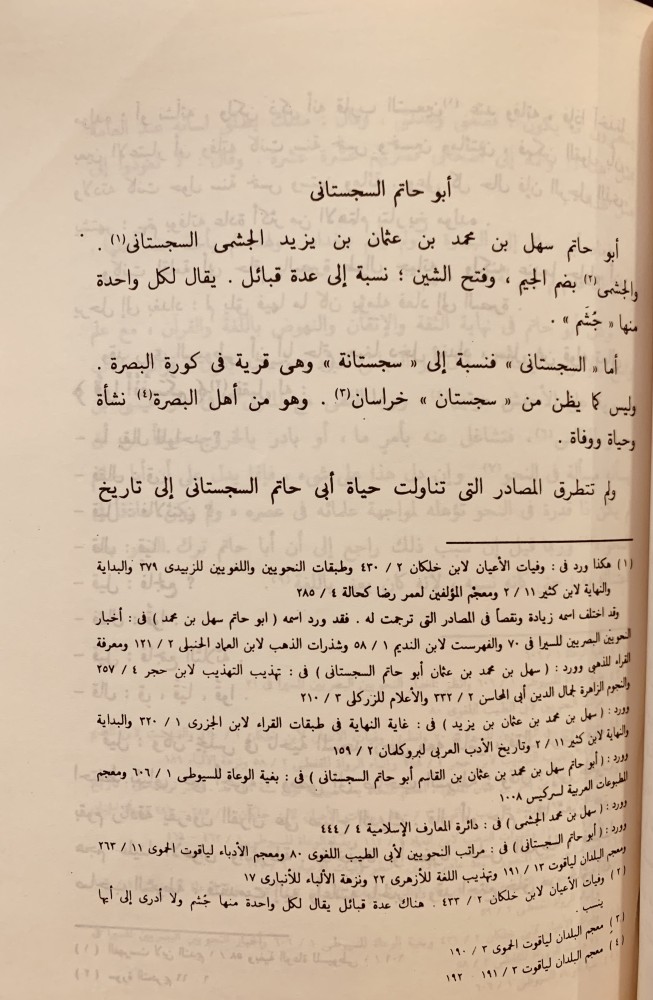 أبو حاتم السجستانى
أبو حاتم سهل بن محمد بن عثمان بن يزيد الجشمى السجستانى(١) .
والجشمى(٢) بضم الجيم ، وفتح الشين ؛ نسبة إلى عدة قبائل . يقال لكل واحدة
منها « جُشَم » .
أما « السجستانى » فنسبة إلى « سجستانة » وهى قرية فى كورة البصرة .
وليس كما يظن من « سجستان » خراسان(٣) . وهو من أهل البصرة(٤) نشأة
وحياة ووفاة .
ولم تتطرق المصادر التى تناولت حياة أبى حاتم السجستانى إلى تاريخ
(١) هكذا ورد فى : وفيات الأعيان لابن خلكان ٢ / ٤٣٠ وطبقات النحويين واللغويين للزبيدى ٣٧٩ والبداية
والنهاية لابن كثير ١١ / ٢ ومعجم المؤلفين لعمر رضا كحالة ٤ / ٢٨٥
وقد اختلف اسمه زيادة ونقصاً فى المصادر التى ترجمت له . فقد ورد اسمه ( ابو حاتم سهل بن محمد ) فى : أخبار
النحويين البصريين للسيرا فى ٧٠ والفهرست لابن النديم ١ / ٥٨ وشذرات الذهب لابن العماد الحنبلى ٢ / ١٢١ ومعرفة
القراء للذهبى وورد : ( سهل بن محمد بن عثمان أبو حاتم السجستانى ) فى : تهذيب التهذيب لابن حجر ٤ / ٢٥٧
والنجوم الزاهرة لجمال الدين أبى المحاسن ٢ / ٣٣٢ والأعلام للزركلى ٣ / ٢١٠
وورد : ( سهل بن محمد بن عثمان بن يزيد ) فى : غاية النهاية فى طبقات القراء لابن الجزرى ١ / ٣٢٠ والبداية
والنهاية لابن كثير ١١ / ٢ وتاريخ الأدب العربى لبروكلمان ٢ / ١٥٩
وورد : ( أبو حاتم سهل بن محمد بن عثمان بن القاسم أبو حاتم السجستانى ) فى : بغية الوعاة للسيوطى ١ / ٦٠٦ ومعجم
المطبوعات العربية لسركيس ١٠٠٨
وورد : ( سهل بن محمد الجشمى ) فى : دائرة المعارف الإسلامية ٤ / ٤٤٤
وورد : ( أبو حاتم السجستانى ) فى : مراتب النحويين لأبى الطيب اللغوى ٨٠ ومعجم الأدباء لياقوت الحموى ١١ / ٢٦٣
ومعجم البلدان لياقوت ١٣ / ١٩١ وتهذيب اللغة للأزهرى ٢٢ ونزهة الألباء للأنبارى ١٧
(٢) وفيات الأعيان لابن خلكان ٢ / ٤٣٣ . هناك عدة قبائل يقال لكل واحدة منها جُشم ولا ادرى إلى أيها
ينسب .
(٣) معجم البلدان لياقوت الحموى ٣ / ١٩٠
(٤) معجم البلدان لياقوت ٣ / ١٩١ ١٩٢